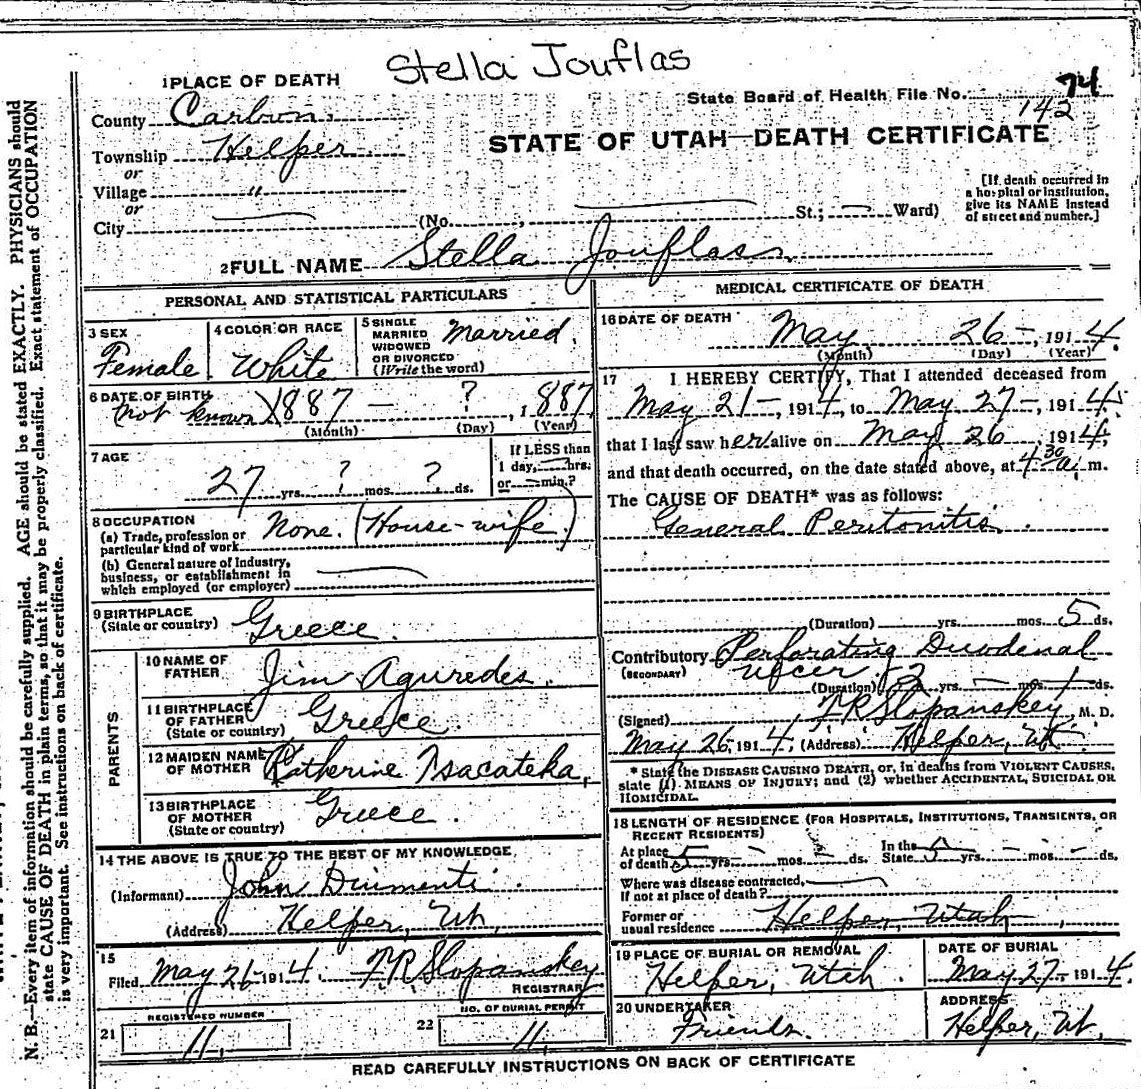 Stella Jouflas
1 PLACE OF DEATH
State Board of Health File No. 74
142
County Carbon.
STATE OF UTAH—DEATH CERTIFICATE
Township Helper.
or
Village "
or
City (No. , St.; Ward)
[If death occurred in
a hospital or institution,
give its NAME instead
of street and number.]
2 FULL NAME Stella Jouflas.
PERSONAL AND STATISTICAL PARTICULARS
3 SEX
Female
4 COLOR OR RACE
White
5 SINGLE
MARRIED
WIDOWED
OR DIVORCED
(Write the word)
Married.
6 DATE OF BIRTH
not known 1887 — ? , 1 887
(Month) (Day) (Year)
7 AGE
27 yrs. ? mos. ? ds.
If LESS than
1 day, hrs.
or min.?
8 OCCUPATION
(a) Trade, profession or
particular kind of work
None. (House-wife.)
(b) General nature of Industry,
business, or establishment in
which employed (or employer)
9 BIRTHPLACE
(State or country) Greece.
PARENTS
10 NAME OF
FATHER Jim Aguredes.
11 BIRTHPLACE
OF FATHER
(State or country) Greece.
12 MAIDEN NAME
OF MOTHER Katherine Tsacateka,
13 BIRTHPLACE
OF MOTHER
(State or country) Greece.
14 THE ABOVE IS TRUE TO THE BEST OF MY KNOWLEDGE
(Informant) John Diumenti.
(Address) Helper, Ut,
15
Filed May 26- 191 4. F.R. Slopanskey
REGISTRAR
21 REGISTERED NUMBER
11.
22 NO. OF BURIAL PERMIT
11.
MEDICAL CERTIFICATE OF DEATH
16 DATE OF DEATH
May 26-, 191 4.
(Month) (Day) (Year)
17 I HEREBY CERTIFY, That I attended deceased from
May 21-, 191 4, to May 27-, 191 4.
that I last saw her alive on May 26, 191 4,
and that death occurred, on the date stated above, at 4 30 a. m.
The CAUSE OF DEATH* was as follows:
General Peritonitis.
(Duration) yrs. mos. 5 ds.
Contributory Perforating Duodenal
(SECONDARY) ulcer
(Duration) 2 yrs. — mos. 1 ds.
(Signed) F.R. Slopanskey, M. D.
May 26, 191 4, (Address) Helper, Ut.
* State the DISEASE CAUSING DEATH, or, in deaths from VIOLENT CAUSES,
state (1) MEANS OF INJURY; and (2) whether ACCIDENTAL, SUICIDAL OR
HOMICIDAL.
18 LENGTH OF RESIDENCE (FOR HOSPITALS, INSTITUTIONS, TRANSIENTS, OR
RECENT RESIDENTS)
At place
of death 5 yrs. — mos. — ds. In the
State 5 yrs. — mos. — ds.
Where was disease contracted,
If not at place of death?
Former or
usual residence Helper, Utah
19 PLACE OF BURIAL OR REMOVAL
Helper, Utah.
DATE OF BURIAL
May 27- 191 4.
20 UNDERTAKER
Friends.
ADDRESS
Helper, Ut.
READ CAREFULLY INSTRUCTIONS ON BACK OF CERTIFICATE
N. B.—Every item of information should be carefully supplied. AGE should be stated EXACTLY. PHYSICIANS should
state CAUSE OF DEATH in plain terms, so that it may be properly classified. Exact statement of OCCUPATION
is very important. See instructions on back of certificate.